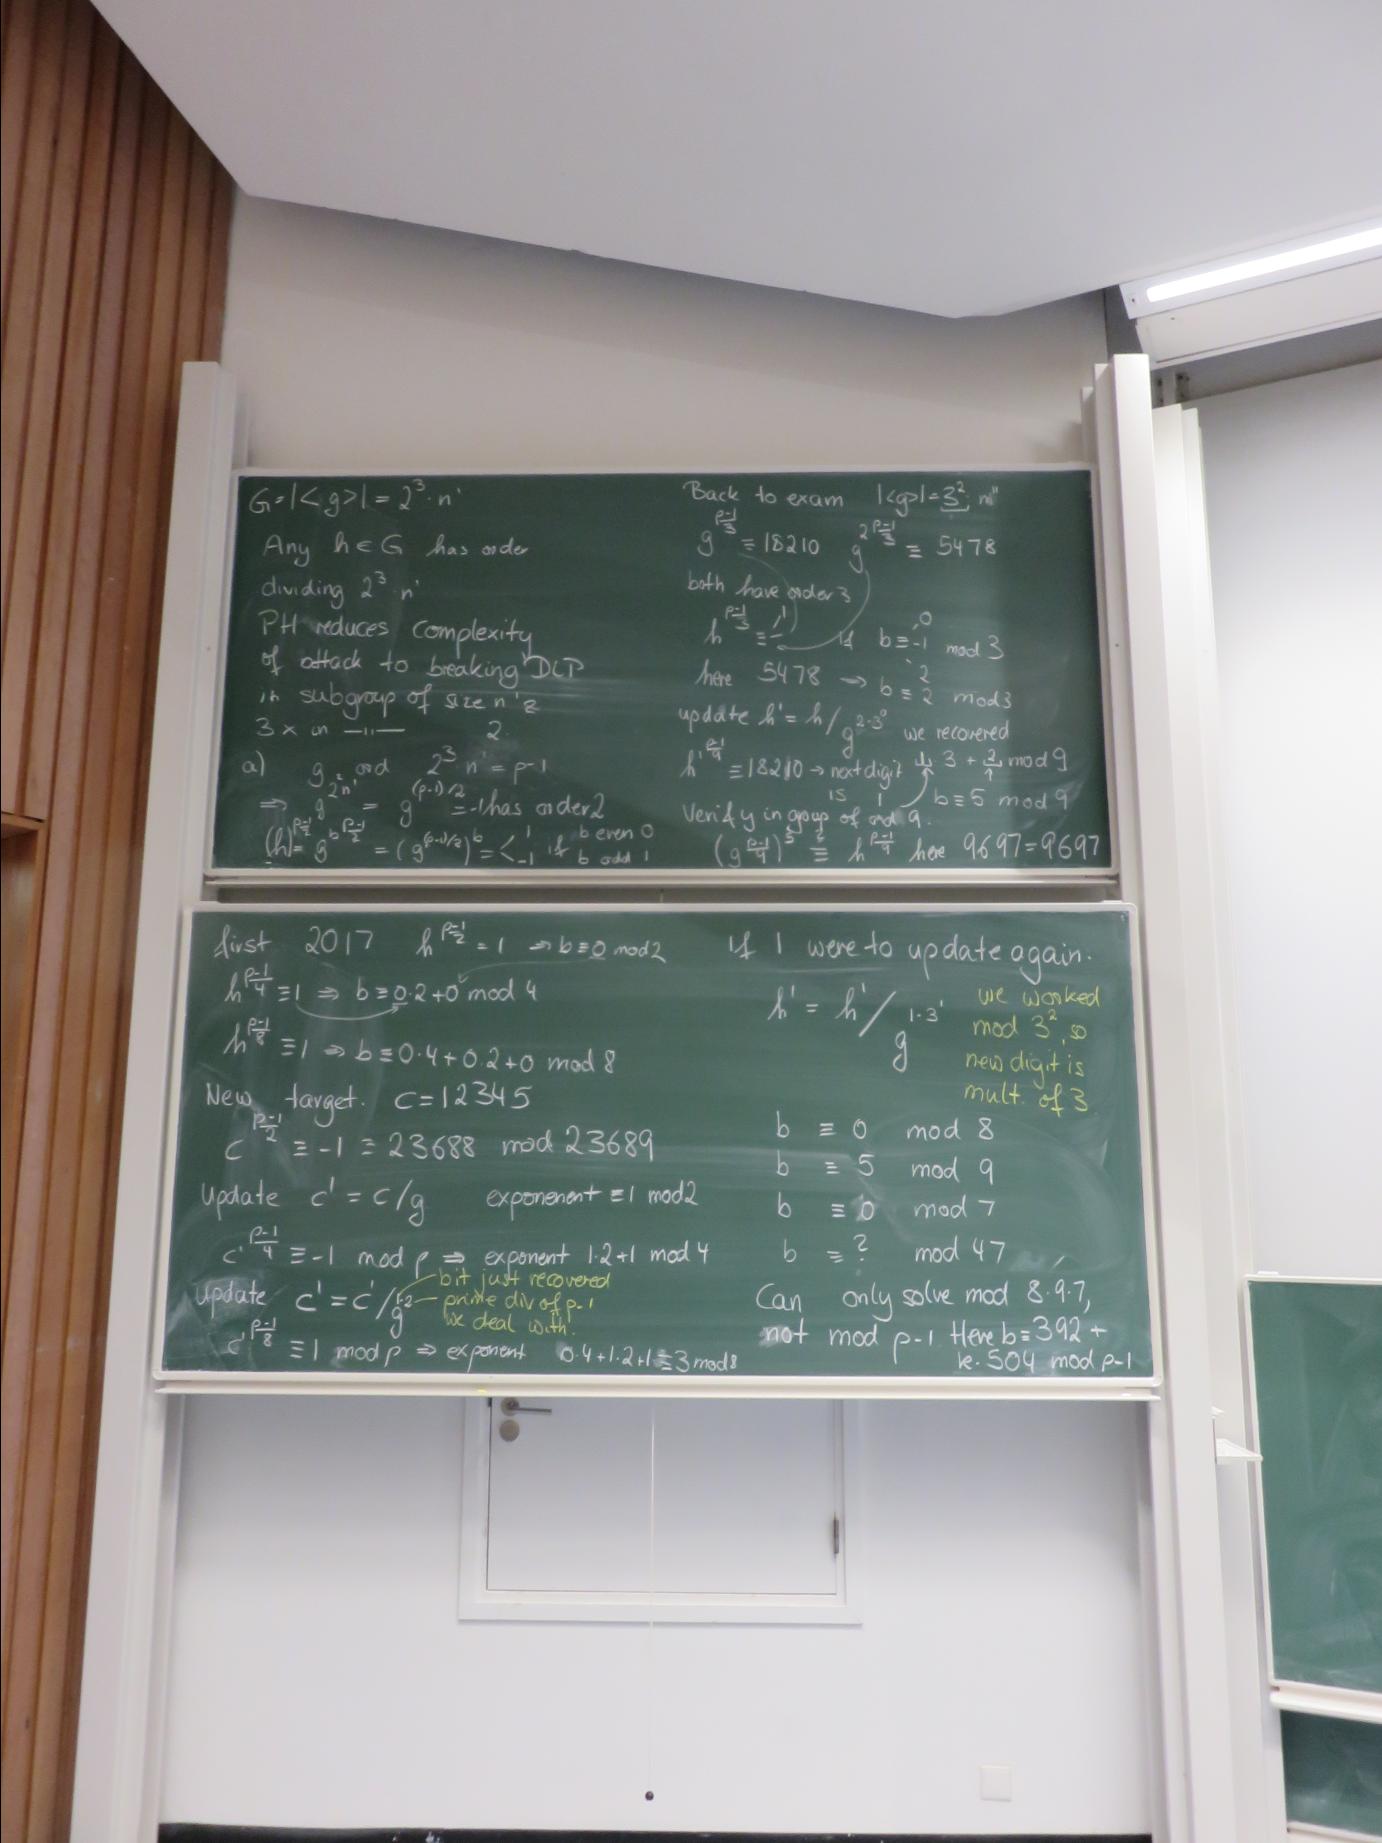 G=|<g>| = 2³·n'
Any h∈G has order
dividing 2³·n'
PH reduces complexity
of attack to breaking DLP
in subgroup of size n' &
3 x in —"— 2.
a) g ord 2³n' = p-1
⇒ g^(2²n') = g^((p-1)/2) ≡ -1 has order 2
(h)^((p-1)/2) = g^(b(p-1)/2) = (g^((p-1)/2))^b = < 1 if b even 0
-1 b odd 1
Back to exam |<g>| = 3²·n''
g^((p-1)/3) ≡ 18210 g^(2(p-1)/3) ≡ 5478
both have order 3
h^((p-1)/3) ≡ 1 if b ≡ 0 1 mod 3
here 5478 → b ≡ 2 2 mod 3
update h' = h/g^(2·3⁰) we recovered
h'^((p-1)/9) ≡ 18210 → next digit 1·3 + 2 mod 9
is 1 b≡5 mod 9
Verify in group of ord 9.
(g^((p-1)/9))^5 ≟ h^((p-1)/9) here 9697=9697
first 2017 h^((p-1)/2) = 1 ⇒ b≡0 mod 2
h^((p-1)/4) ≡ 1 ⇒ b≡0·2+0 mod 4
h^((p-1)/8) ≡ 1 ⇒ b≡0·4+0·2+0 mod 8
New target. c=12345
c^((p-1)/2) ≡ -1 ≡ 23688 mod 23689
Update c' = c/g exponenent ≡ 1 mod 2
c'^((p-1)/4) ≡ -1 mod p ⇒ exponent 1·2+1 mod 4
Update c' = c'/g^(1·2)
bit just recovered
prime div of p-1
we deal with.
c'^((p-1)/8) ≡ 1 mod p ⇒ exponent 0·4+1·2+1≡3 mod 8
If I were to update again.
h' = h'/g^(1·3¹)
we worked
mod 3², so
new digit is
mult. of 3
b ≡ 0 mod 8
b ≡ 5 mod 9
b ≡ 0 mod 7
b ≡ ? mod 47
Can only solve mod 8·9·7,
not mod p-1 Here b=392+
k·504 mod p-1